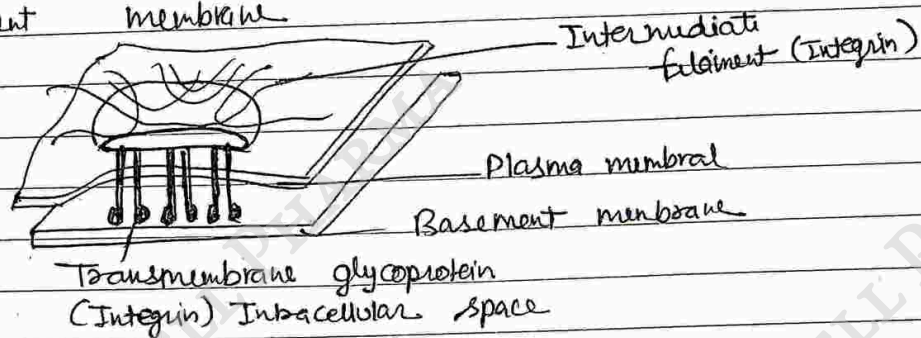 ent membrane
Intermudiati
filaiment (Integrin)
Plasma membral
Basement menbrane
Transmumbrane glycoprotein
(Integrin) Intracellular space
PHARMA